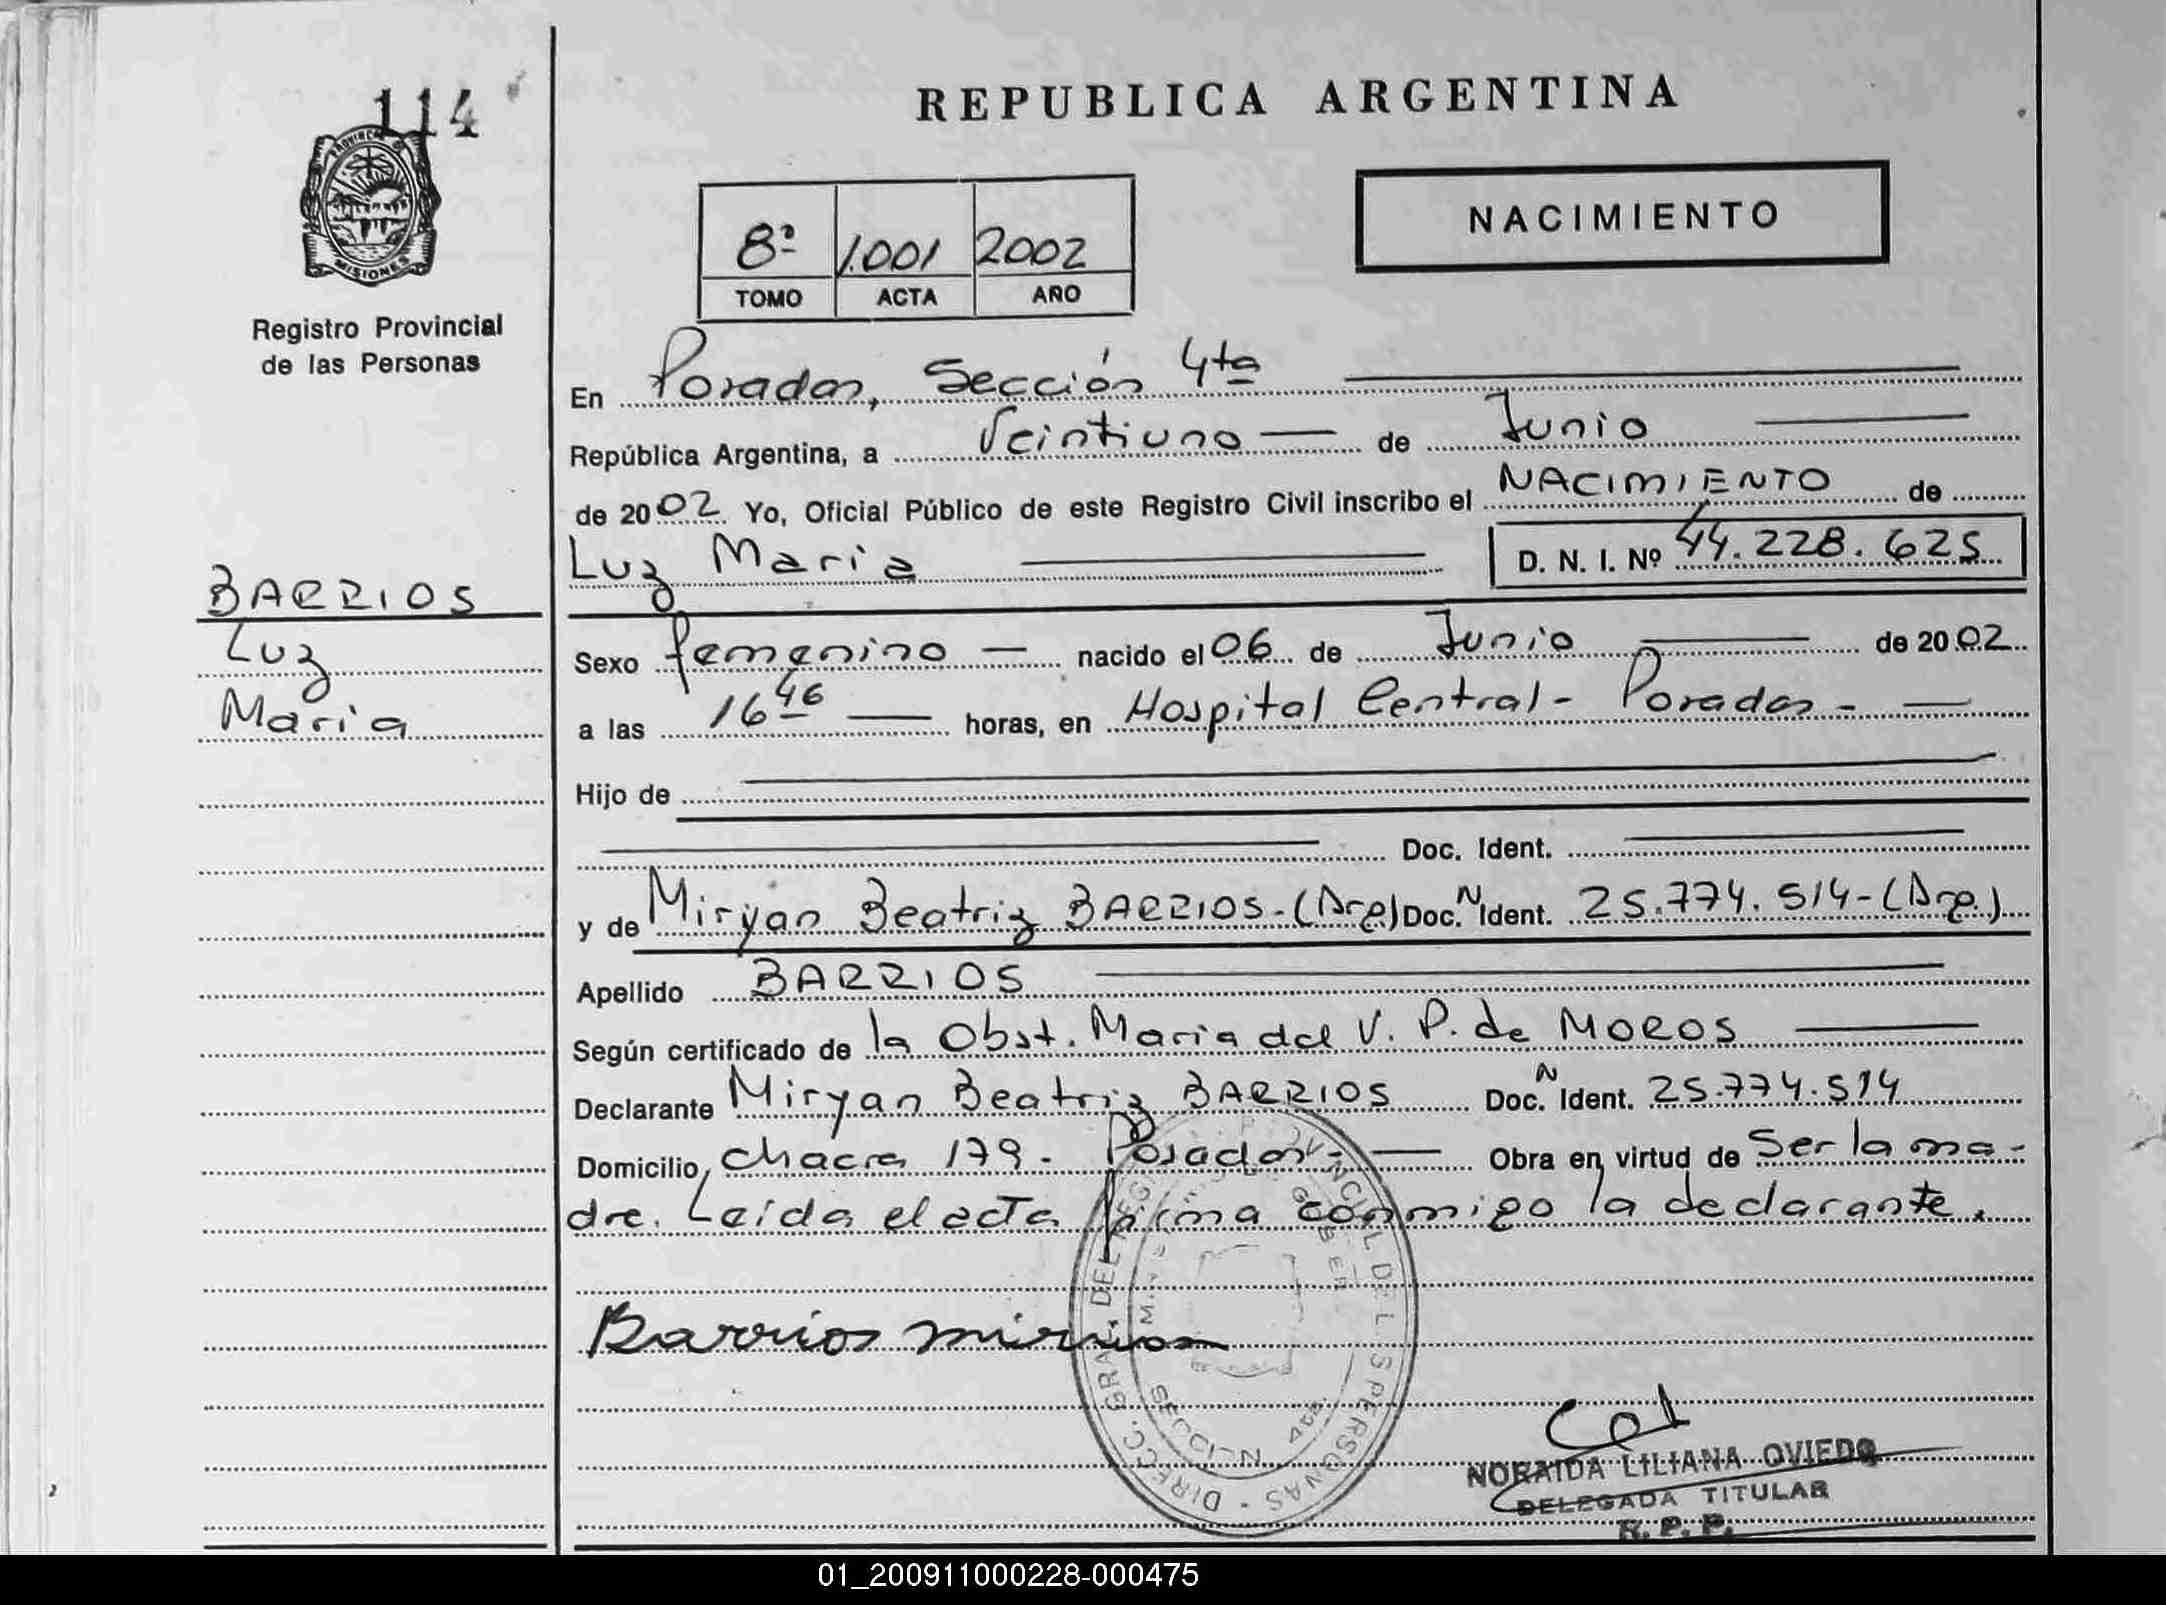 114
REPUBLICA ARGENTINA
PROVINCIA D
MISIONES
Registro Provincial
de las Personas
NACIMIENTO
8º 1.001 2002
TOMO ACTA AÑO
En Posadas, Sección 4ta
República Argentina, a Veintiuno de Junio
de 2002 Yo, Oficial Público de este Registro Civil inscribo el NACIMIENTO de
Luz Maria D. N. I. Nº 44.228.625
BARRIOS
Luz
Maria
Sexo femenino nacido el 06 de Junio de 2002
a las 16 46 horas, en Hospital Central - Posadas -
Hijo de
Doc. Ident.
y de Miryan Beatriz BARRIOS-(Arg) Doc. N Ident. 25.774.514-(Arg.)
Apellido BARRIOS
Según certificado de la Obst. Maria del V. P. de MOROS
Declarante Miryan Beatriz BARRIOS Doc. N Ident. 25.774.514
Domicilio, Chacra 179 - Posadas - Obra en virtud de Ser la ma-
dre. Leída el acta firma conmigo la declarante.
Barrios
DIRECC. GRAL. DEL REGISTRO PROVINCIAL DE LAS PERSONAS
NORAIDA LILIANA OVIEDO
DELEGADA TITULAR
R. P. P.
01_200911000228-000475